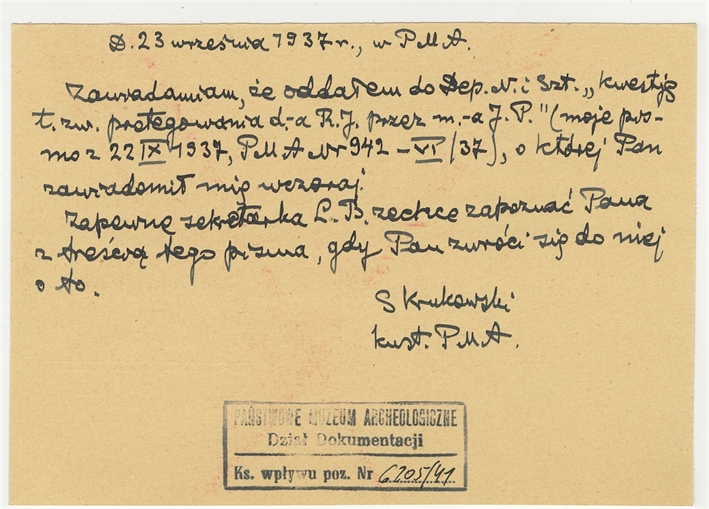 D. 23 września 1937 r., w P.M.A.
Zawiadamiam, że oddałem do Dep. N. i Szt. „kwestję
t. zw. protegowania d-a R.J. przez m.-a J.P." (moje pis-
mo z 22 IX 1937, P.M.A Nr 942 – VI/37), o której Pan
zawiadomił mię wczoraj.
Zapewnę sekretarka L.B. zechce zapoznać Pana
z treścią tego pisma, gdy Pan zwróci się do niej
o to.
S Krukowski
kust. P.M.A.
PAŃSTWOWE MUZEUM ARCHEOLOGICZNE
Dział Dokumentacji
Ks. wpływu poz. Nr 6205/41